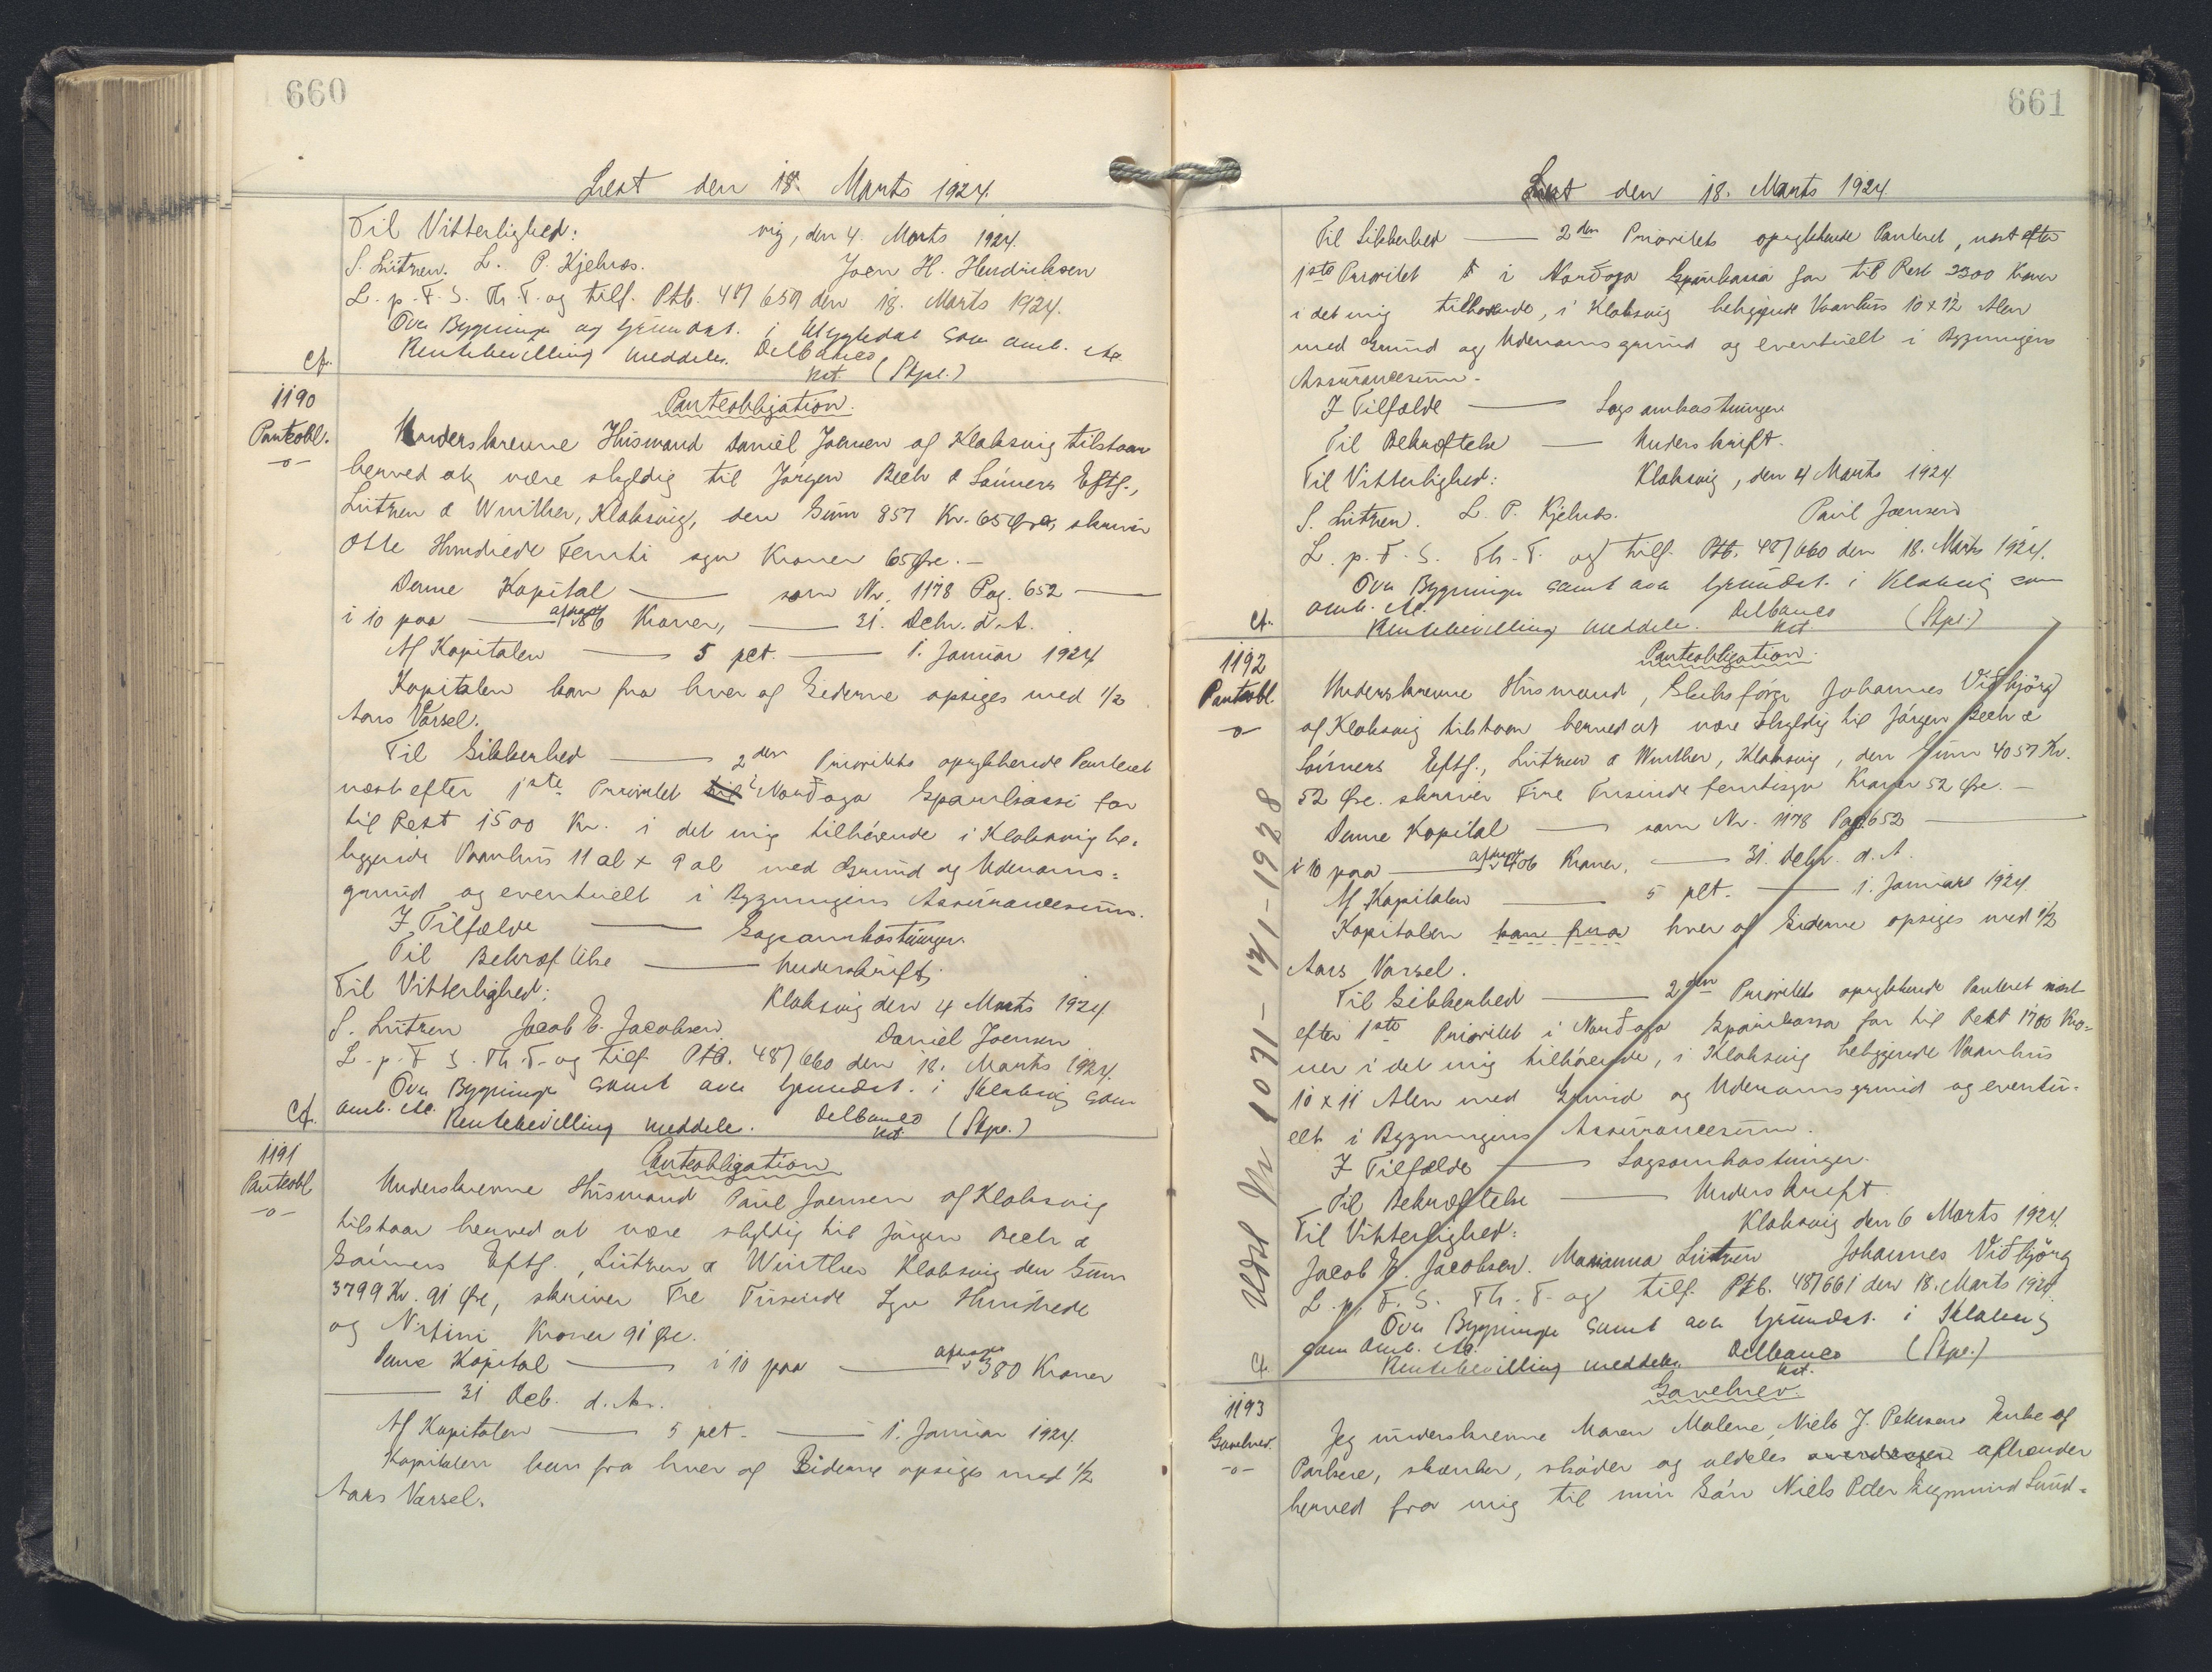 660
Læst den 18. Marts 1924.
Til Vitterlighed: vig, den 4. Marts 1924.
S. Lützen. L. P. Kjelnæs. Joen H. Hendriksen
L. p. F. S. Th. T. og tilf. Ptb. 48/659 den 18. Marts 1924.
Ova Bygninge og Grundst. i som anb. etc.
Cf. Rentebevilling meddeles. Delbanco
kst. (Stpl.)
1190 Panteobligation.
Panteobl. Underskrevne Husmand Daniel Joensen af Klaksvig tilstaar
-o- herved at være skyldig til Jörgen Bech & Sönners Eftf.,
Lützen & Winther, Klaksvig, den Sum 857 Kr. 65 Øre, skriver
Otte Hundrede Femti syv Kroner 65 Øre. –
Denne Kapital —— som Nr. 1178 Pag. 652 ——
i 10 paa —— 86 Kroner, —— 31. Debr. d. A.
Af Kapitalen —— 5 pct. —— 1. Januar 1924
Kapitalen kan fra hver af Siderne opsiges med 1/2
Aars Varsel.
Til Sikkerhed —— 2den Prioritets oprykkende Panteret
næst efter 1ste Prioritet til i Norðoya Sparikassi for
til Rest 1500 Kr. i det mig tilhörende i Klaksvig be-
liggende Vaanhus 11 al x 9 al med Grund og Udenoms=
grund og eventuelt i Bygningens Assurancesum.
I Tilfælde —— Sagsomkostninger.
Til Bekræftelse —— Underskrift.
Til Vitterlighed: Klaksvig den 4 Marts 1924
S. Lützen Jacob E. Jacobsen Daniel Joensen
L. p. F. S. Th. T. og tilf. Ptb. 48/660 den 18. Marts 1924.
Ova Bygninge samt ava Grundst. i Klaksvig som
Cf. anb. etc. Rentebevilling meddeles. Delbanco (Stpl.)
kst
1191 Panteobligation
Panteobl Underskrevne Husmand Paul Joensen af Klaksvig
-o- tilstaar herved at være skyldig til Jörgen Bech &
Sönners Eftf., Lützen & Winther Klaksvig den Sum
3799 Kr. 91 Øre, skriver Tre Tusinde Syv Hundrede
og Nitini Kroner 91 Øre.
Denne Kapital —— i 10 paa —— 380 Kroner
—— 31 Deb. d. Ar.
Af Kapitalen —— 5 pct. —— 1. Januar 1924.
Kapitalen kan fra hver af Siderne opsiges med 1/2
Aars Varsel.
661
Læst den 18. Marts 1924
Til Sikkerhed —— 2den Prioritets oprykkende Panteret, næst efter
1ste Prioritet i Norðoya Sparikassa for til Rest 2300 Kroner
i det mig tilhörende, i Klaksvig beliggende Vaanhus 10 x 12 Alen
med Grund og Udenomsgrund og eventuelt i Bygningens
Assurancesum.
I Tilfælde —— Sagsomkostninger
Til Bekræftelse —— Underskrift.
Til Vitterlighed: Klaksvig, den 4 Marts 1924
S. Lützen. L. P. Kjelnæs. Paul Joensen
L. p. F. S. Th. T. og tilf. Ptb. 48/660 den 18. Marts 1924.
Ova Bygninge samt ava Grundst. i Klaksvig som
anb. etc.
Cf. Rentebevilling meddele. Delbanco (Stpl.)
kst.
1192 Panteobligation.
Panteobl. Underskrevne Husmand, Johannes Viðbjörg
-o- af Klaksvig tilstaar herved at være skyldig til Jörgen Bech &
Sönners Eftf., Lützen & Winther, Klaksvig, den Sum 4057 Kr.
52 Øre. skriver Fire Tusinde femtisyv Kroner 52 Øre. –
Denne Kapital —— som Nr. 1178 Pag. 652 ——
i 10 paa —— 406 Kroner. —— 31. Debr. d. A.
Af Kapitalen —— 5 pct. —— 1. Januar 1924
Kapitalen kan fra hver af Siderne opsiges med 1/2
Aars Varsel.
Til Sikkerhed —— 2den Prioritets oprykkende Panteret næst
efter 1ste Prioritet i Norðoya Sparikassa for til Rest 1700 Kro=
ner i det mig tilhörende, i Klaksvig beliggende Vaanhus
10 x 11 Alen med Grund og Udenomsgrund og eventu=
elt i Bygningens Assurancesum.
I Tilfælde —— Sagsomkostninger.
Til Bekræftelse —— Underskrift
Til Vitterlighed: Klaksvig den 6 Marts 1924.
Jacob E. Jacobsen. Marianna Lützen Johannes Viðbjörg
L. p. F. S. Th. T. og tilf. Ptb. 48/661 den 18. Marts 1924.
Ova Bygninge samt ava Grundst. i Klaksvig
som anb. etc.
Cf. Rentebevilling meddeles. Delbanco (Stpl.)
kst.
Udsl Nr 1031 - 14/1-1928
1193 Gavebrev.
Gavebrev. Jeg underskrevne Maren Malene, Niels J. Petersens Enke af
-o- Porkere, skænker, skøder og aldeles overdrager afhænder
herved fra mig til min Søn Niels Peter Sigmund Sund=